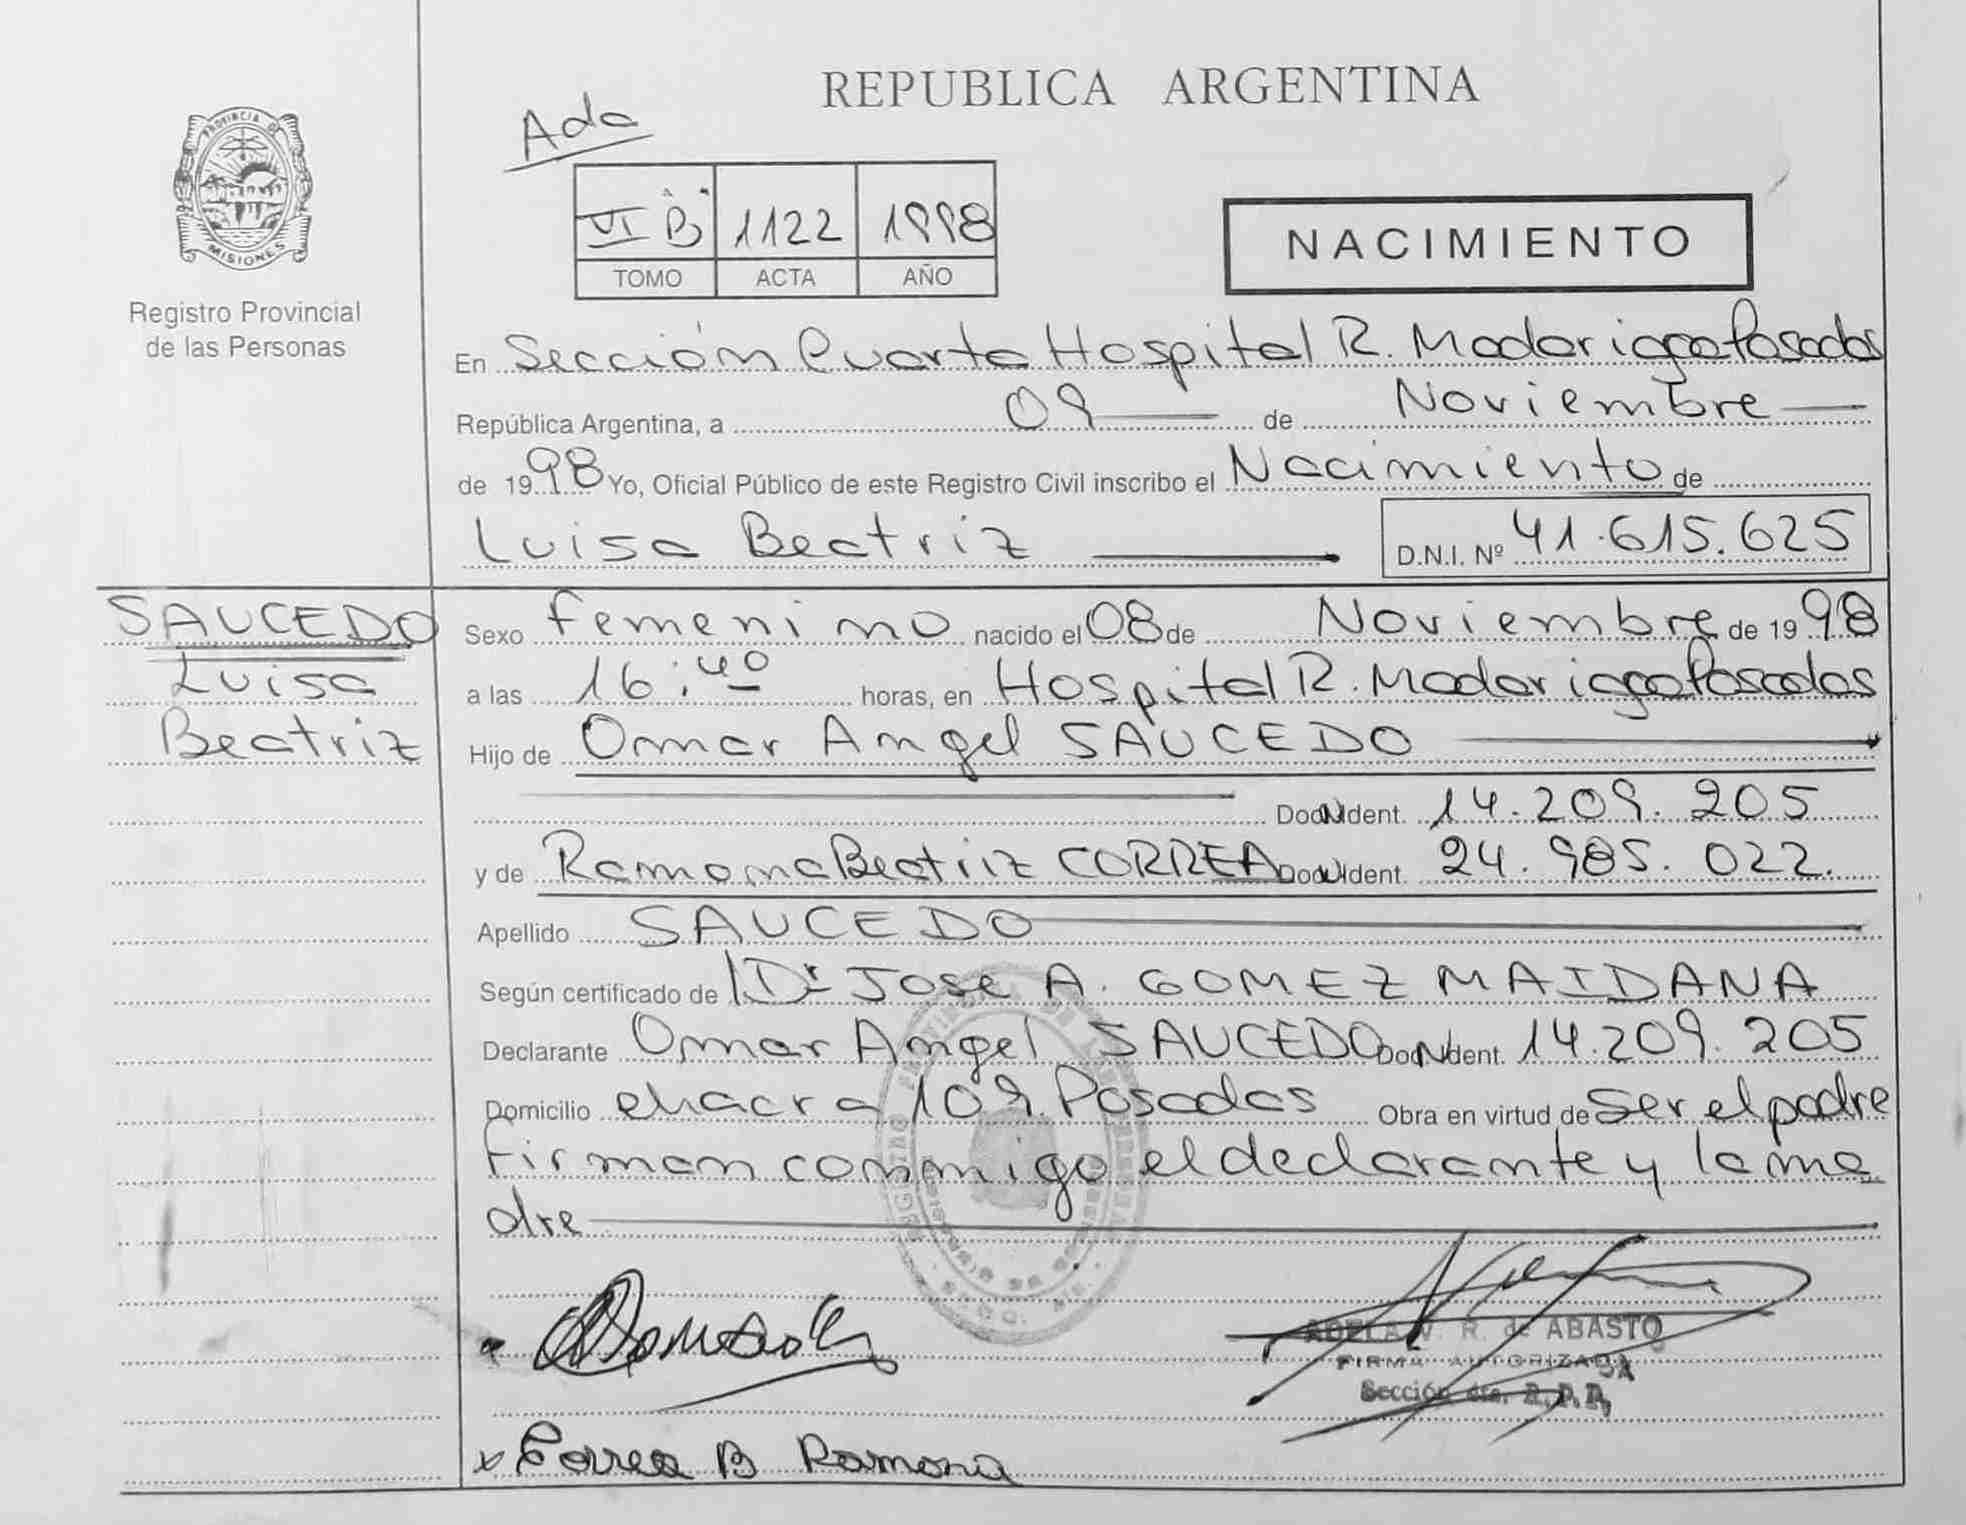 REPUBLICA ARGENTINA
Ada
PROVINCIA DE
MISIONES
VI "B" 1122 1998
TOMO ACTA AÑO
NACIMIENTO
Registro Provincial
de las Personas
En Sección Cuarta Hospital R. Madariaga Posadas
República Argentina, a 09 de Noviembre
de 1998 Yo, Oficial Público de este Registro Civil inscribo el Nacimiento de
Luisa Beatriz D.N.I. Nº 41.615.625
SAUCEDO
Luisa
Beatriz
Sexo femenino nacido el 08 de Noviembre de 1998
a las 16:40 horas, en Hospital R. Madariaga Posadas
Hijo de Omar Angel SAUCEDO
Doc. Ident. 14.209.205
y de Ramona Beatriz CORREA Doc. Ident. 24.985.022.
Apellido SAUCEDO
Según certificado de Dr JOSE A. GOMEZ MAIDANA
Declarante Omar Angel SAUCEDO Doc. Ident. 14.209.205
Domicilio chacra 109. Posadas Obra en virtud de ser el padre
firman conmigo el declarante y la ma
dre
ADELA V. R. de ABASTO
FIRMA AUTORIZADA
Sección 4ta. R.P.P.
x Correa B Ramona